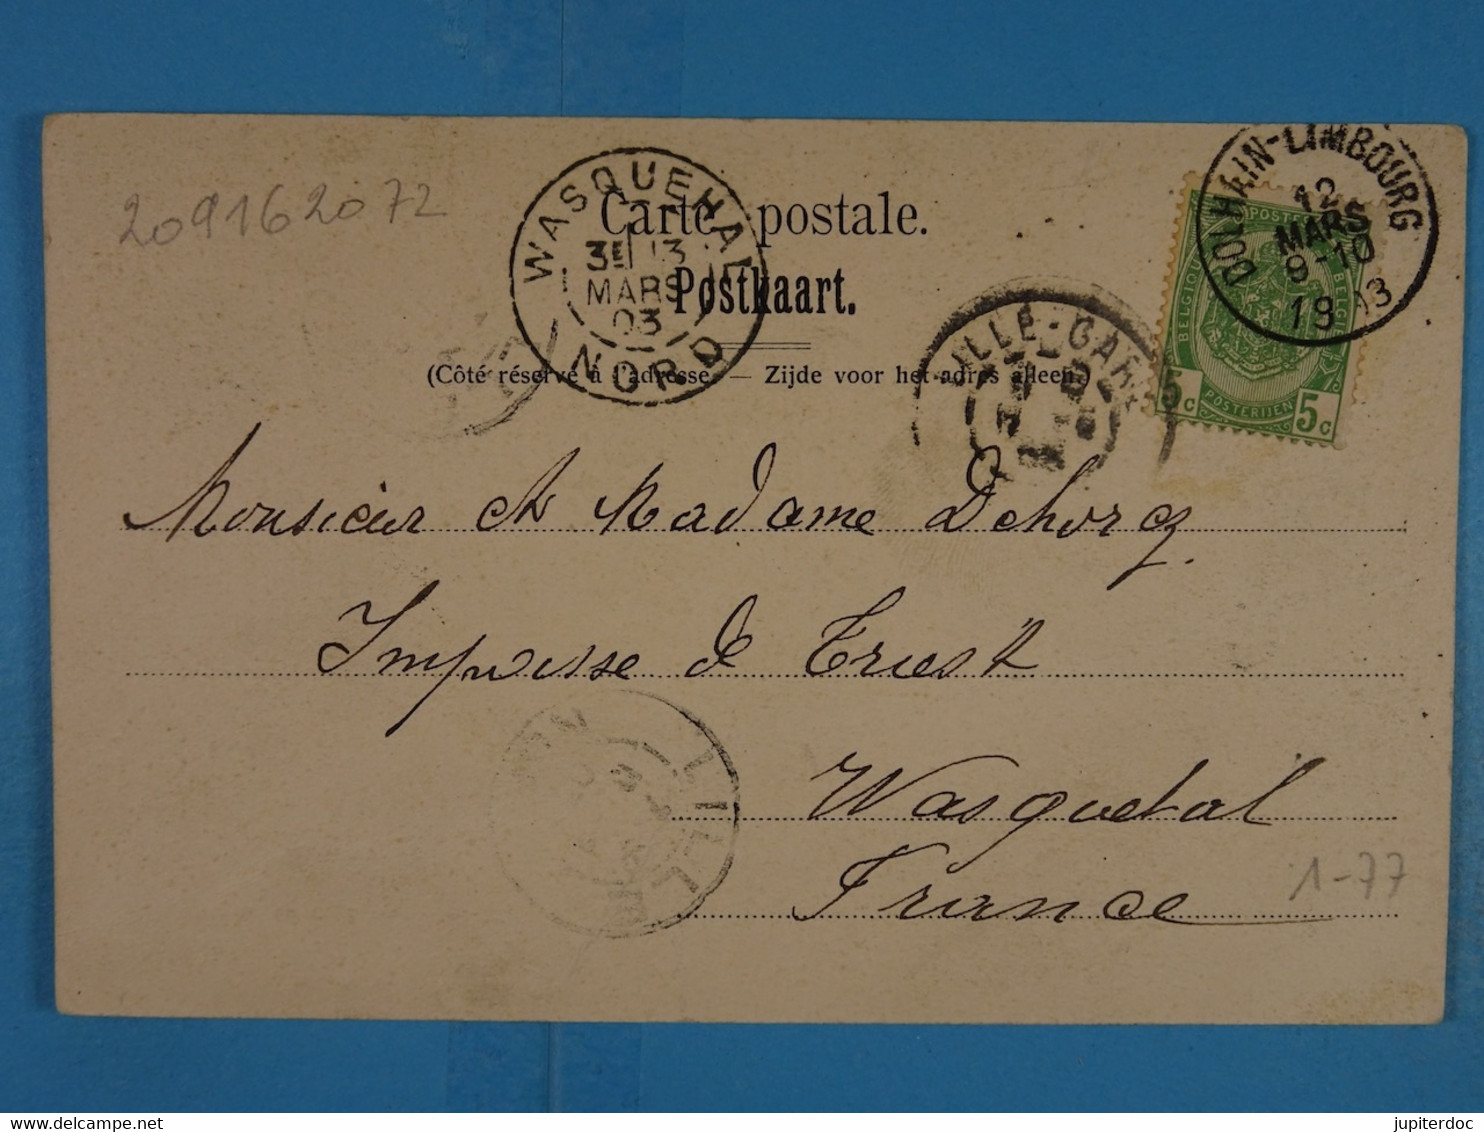 2091620 72
WASQUEHAL
3E 13
MARS
03
NORD
Carte postale.
Postkaart.
(Côté réservé à l'adresse. — Zijde voor het adres alleen.)
LILLE-GARE
DOLHAIN-LIMBOURG
12
MARS
9-10
1903
BELGIQUE POSTES BELGIË
POSTERIJEN
5c 5c
Monsieur et Madame Dehorcq
Impasse de Triest
Wasquehal
France
LILLE
1-77
jupiterdoc